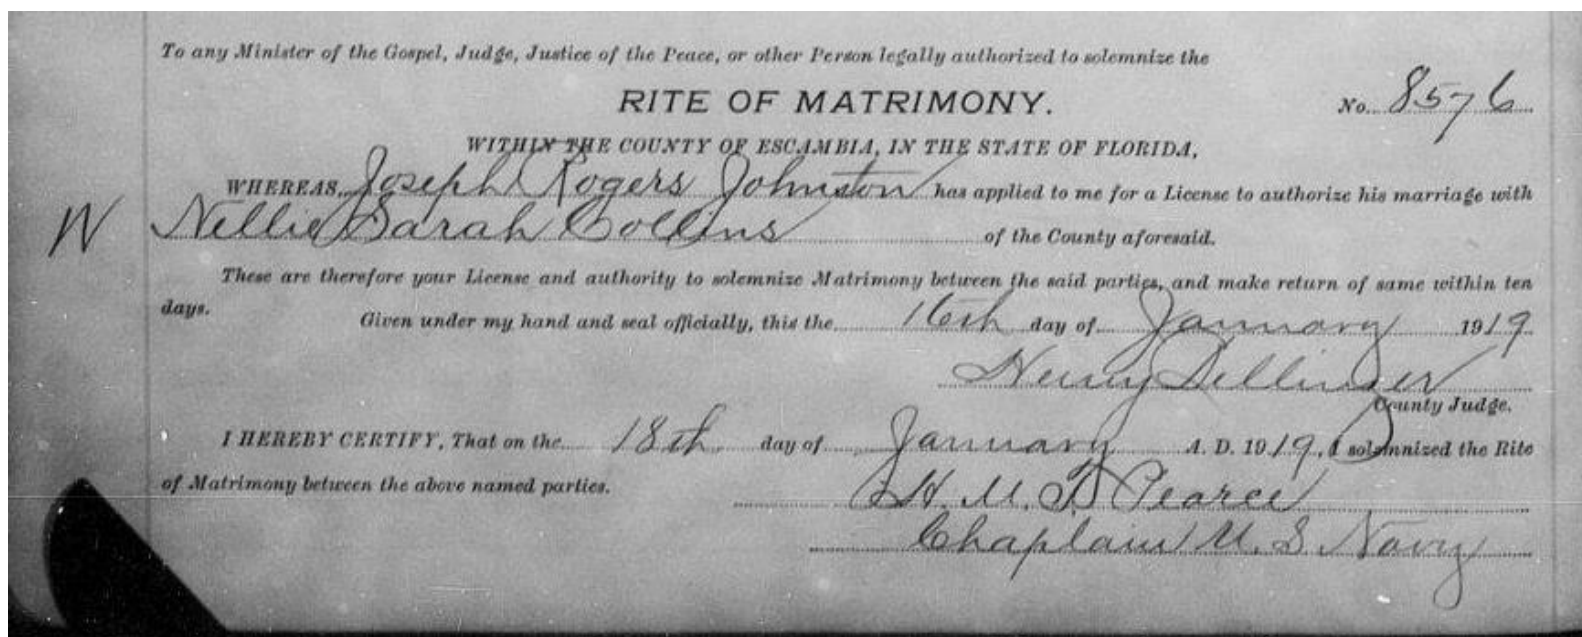 To any Minister of the Gospel, Judge, Justice of the Peace, or other Person legally authorized to solemnize the
RITE OF MATRIMONY.
No. 8576
WITHIN THE COUNTY OF ESCAMBIA, IN THE STATE OF FLORIDA,
WHEREAS, Joseph Rogers Johnston has applied to me for a License to authorize his marriage with
W Nellie Sarah Collins of the County aforesaid.
These are therefore your License and authority to solemnize Matrimony between the said parties, and make return of same within ten
days.
Given under my hand and seal officially, this the 16th day of January 1919
Henry Bellinger
County Judge.
I HEREBY CERTIFY, That on the 18th day of January A. D. 1919, I solemnized the Rite
of Matrimony between the above named parties. H. M. T. Pearce
Chaplain U. S. Navy